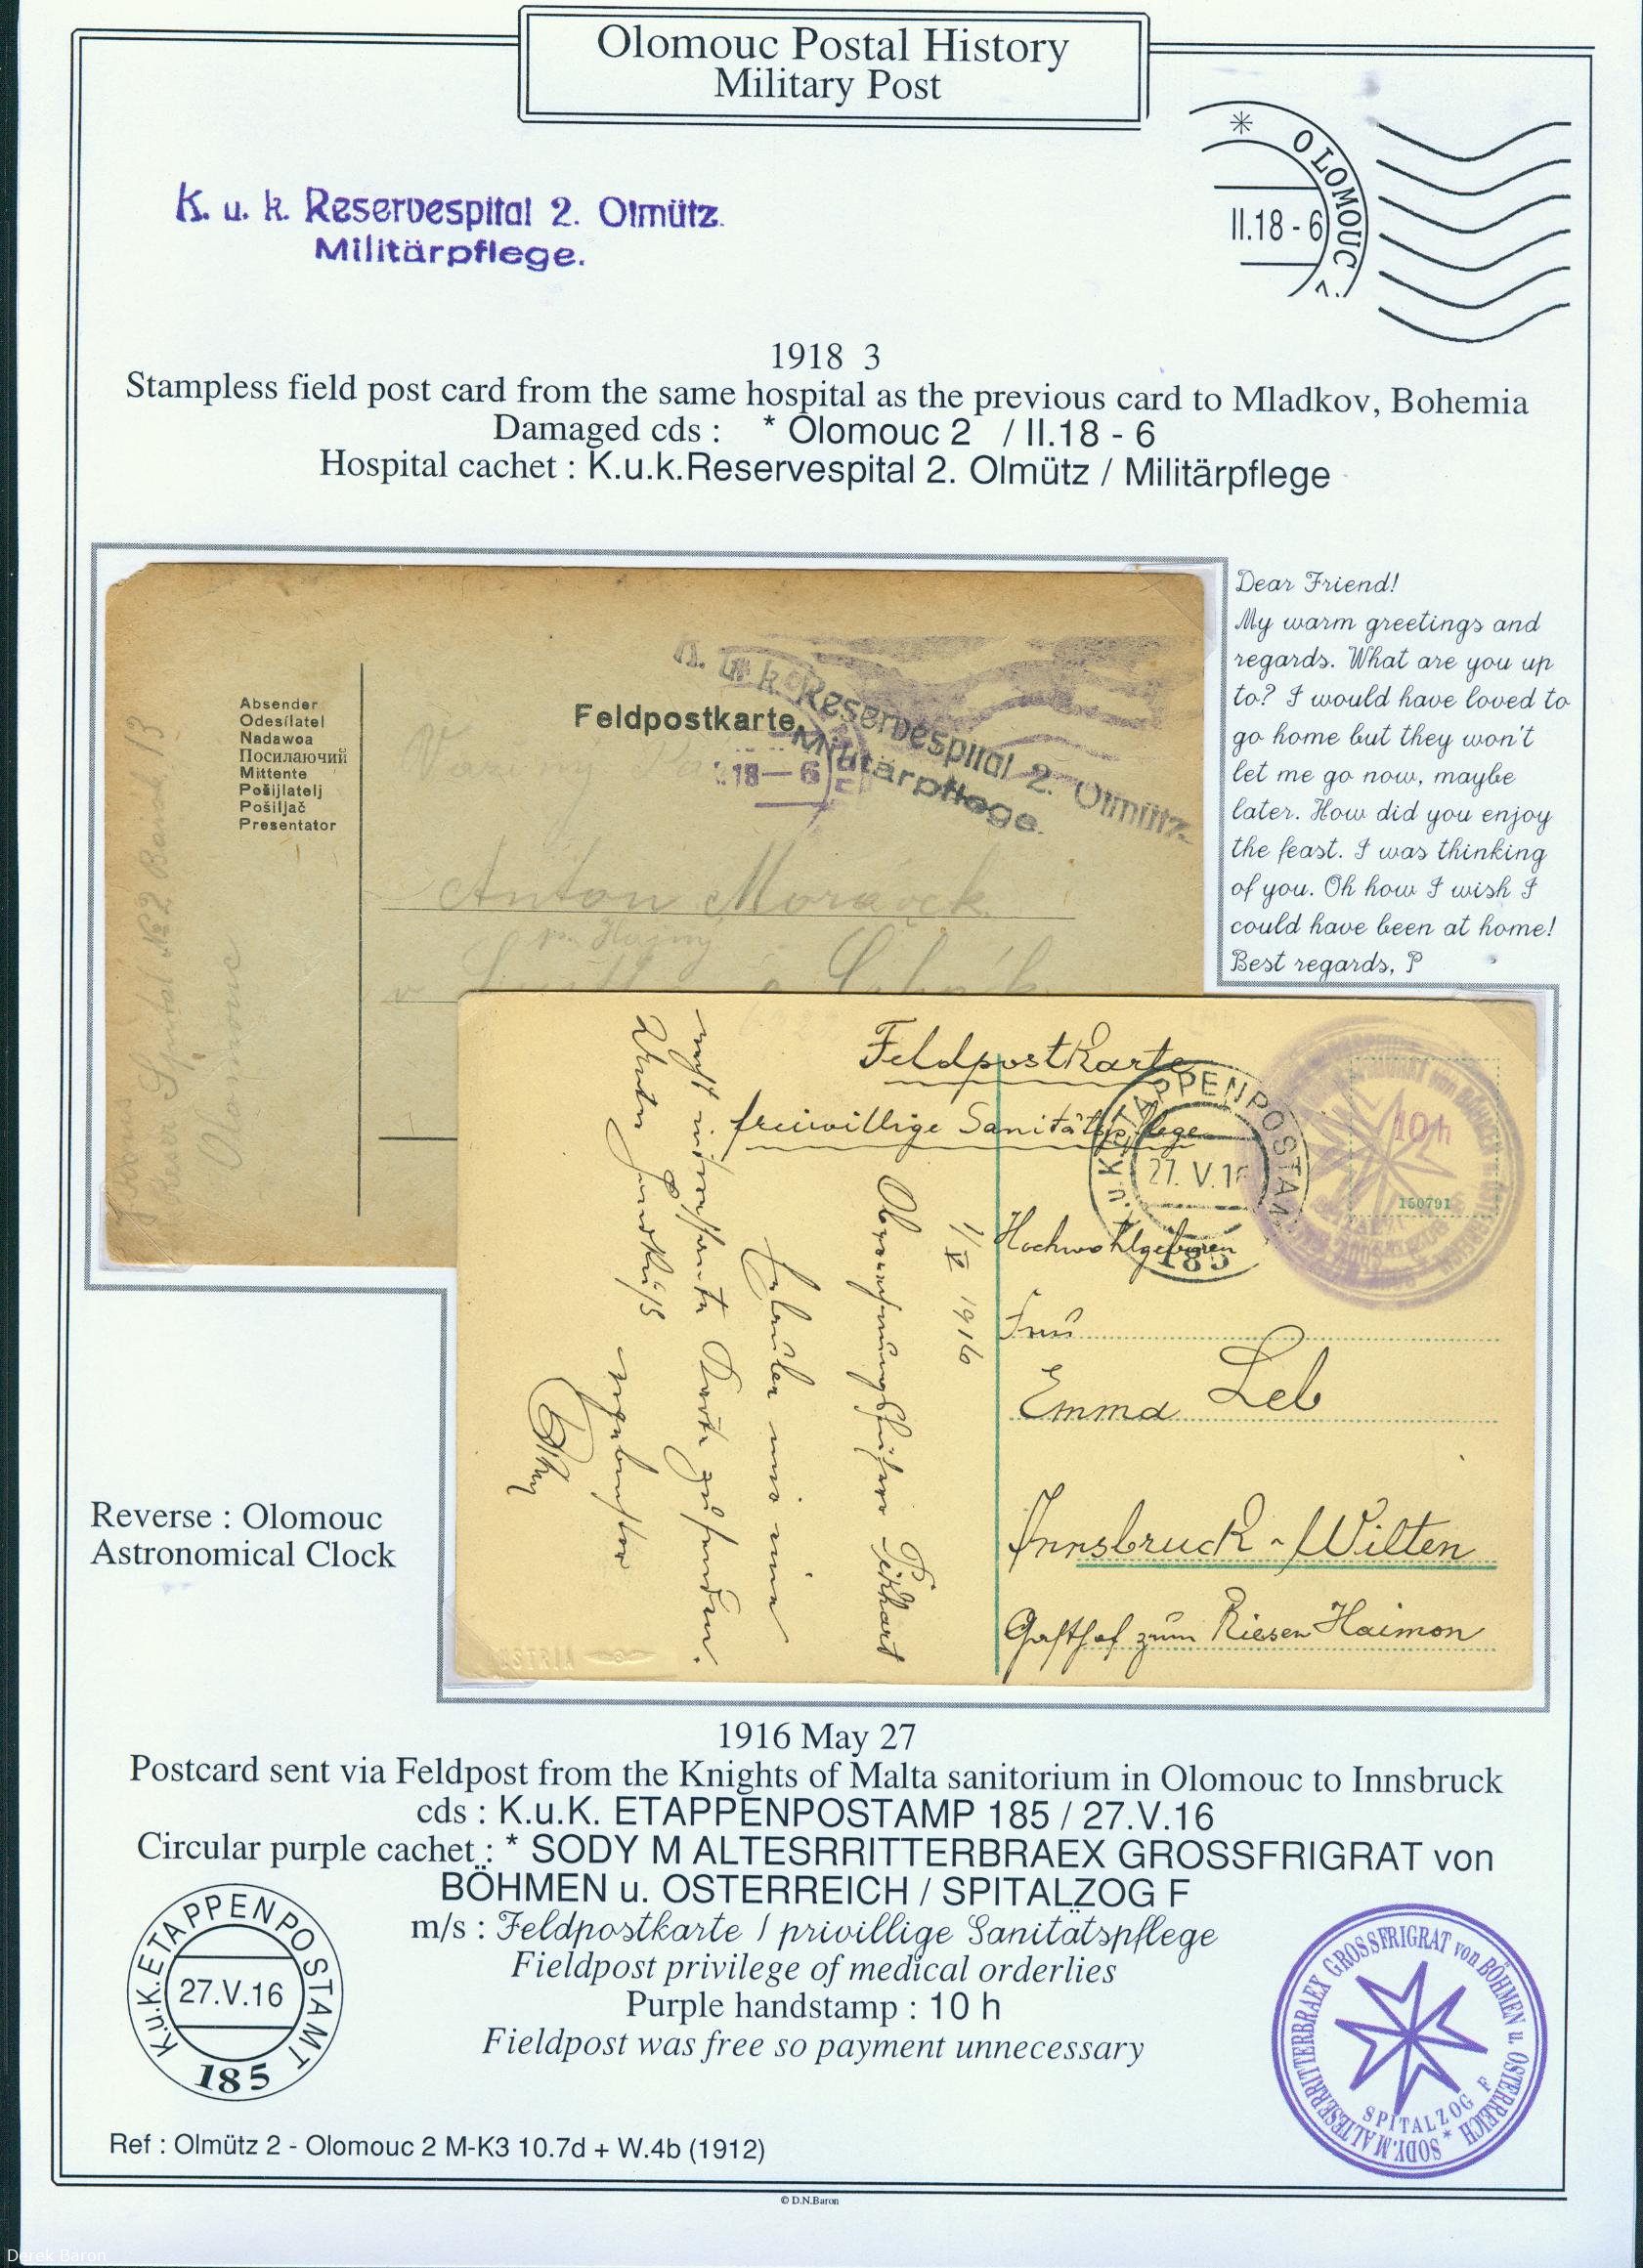 Olomouc Postal History
Military Post
K. u. k. Reservespital 2. Olmütz.
Militärpflege.
* OLOMOUC
II.18 - 6
1918 3
Stampless field post card from the same hospital as the previous card to Mladkov, Bohemia
Damaged cds : * Olomouc 2 / II.18 - 6
Hospital cachet : K.u.k.Reservespital 2. Olmütz / Militärpflege
Absender
Odesílatel
Nadawca
Посилаючий
Mittente
Pošijlatelj
Pošiljač
Presentator
Feldpostkarte
K. u. k. Reservespital 2. Olmütz.
Militärpflege.
18—6
Anton Moravek
Olomouc
Dear Friend!
My warm greetings and
regards. What are you up
to? I would have loved to
go home but they won't
let me go now, maybe
later. How did you enjoy
the feast. I was thinking
of you. Oh how I wish I
could have been at home!
Best regards, P
Feldpostkarte
freiwillige Sanitätspflege
u. K. ETAPPENPOSTAM
27. V. 16
185
10 h
150791
Hochwohlgeboren
Frau
Emma Leb
Innsbruck - Wilten
Gasthof zum Riesen Haimon
1/V 1916
Reverse : Olomouc
Astronomical Clock
1916 May 27
Postcard sent via Feldpost from the Knights of Malta sanitorium in Olomouc to Innsbruck
cds : K.u.K. ETAPPENPOSTAMP 185 / 27.V.16
Circular purple cachet : * SODY M ALTESRRITTERBRAEX GROSSFRIGRAT von
BÖHMEN u. OSTERREICH / SPITALZOG F
m/s : Feldpostkarte / privillige Sanitätspflege
Fieldpost privilege of medical orderlies
Purple handstamp : 10 h
Fieldpost was free so payment unnecessary
K.u.K. ETAPPENPOSTAMT
27.V.16
185
* SODY.M.ALTIESERRITTERBRAEX GROSSFRIGRAT von BÖHMEN u. OSTERREICH
SPITALZOG F
Ref : Olmütz 2 - Olomouc 2 M-K3 10.7d + W.4b (1912)
© D.N.Baron
Derek Baron